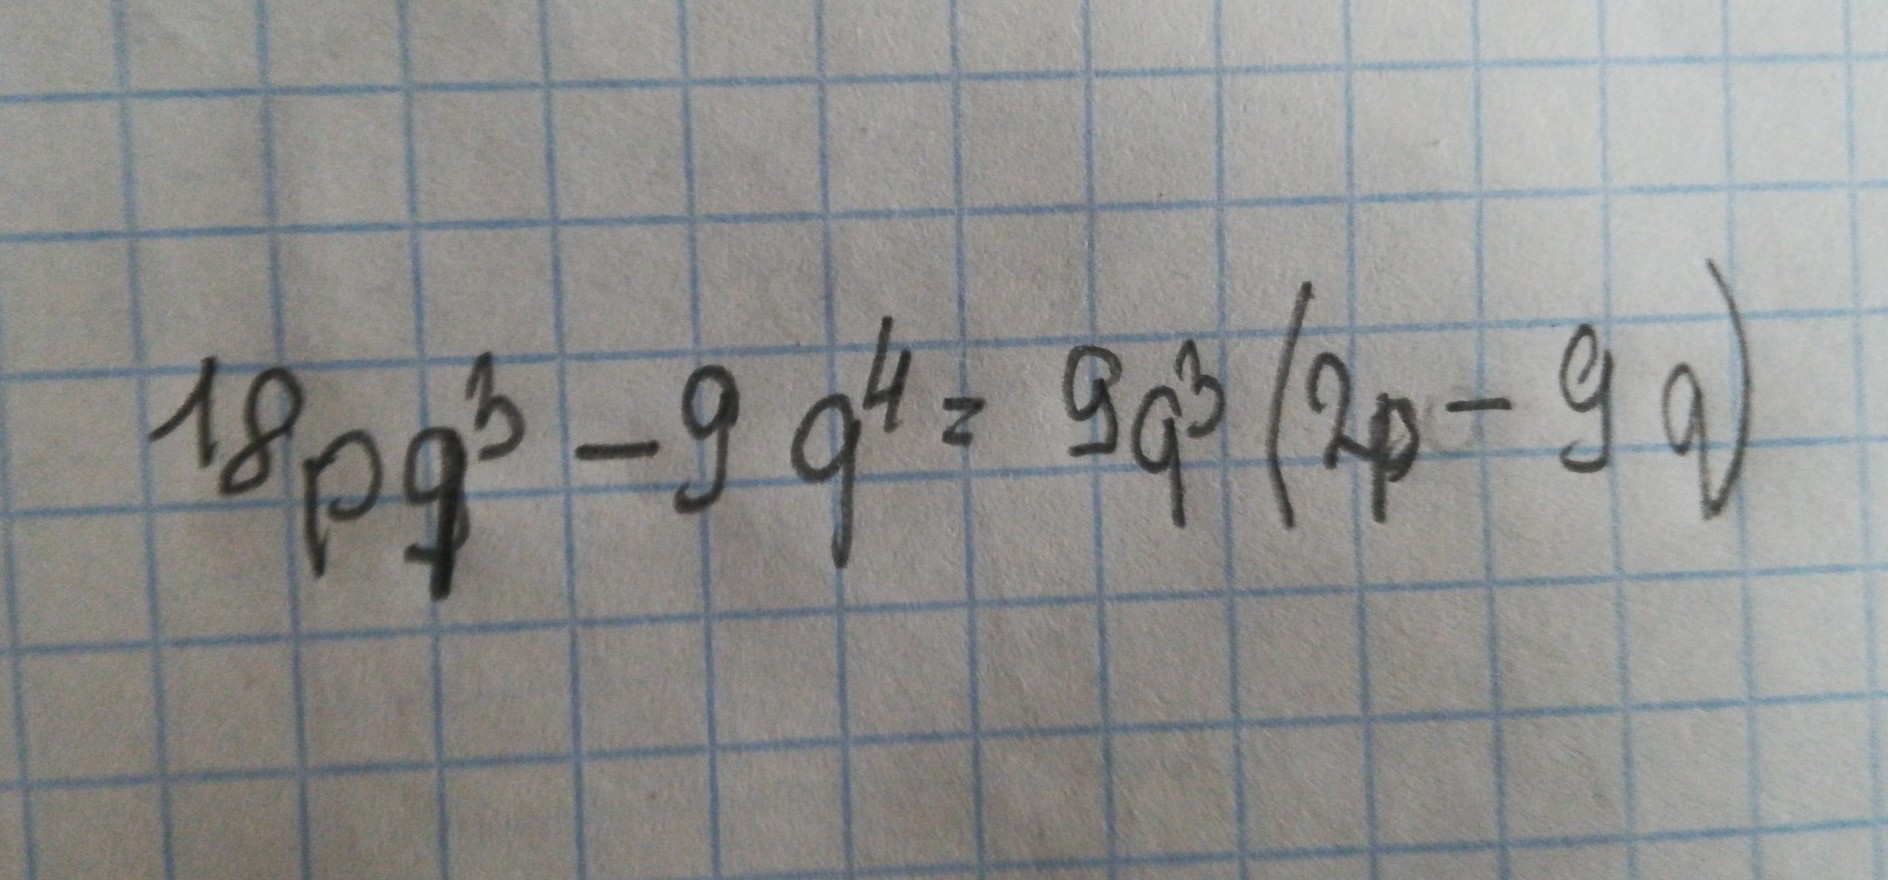 18pq³ - 9q⁴ = 9q³(2p - 9q)